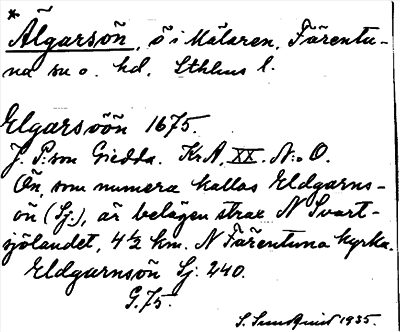 *
Älgarsön, ö i Mälaren, Färentu-
na sn o. hd, Sthlms l.
Elgarsöön 1675.
J. P:son Giedda. KrA, XX. N:o O.
Ön, som numera kallas Eldgarns-
ön (Sj.), är belägen strax N Svart-
sjölandet, 4½ km. N Färentuna kyrka.
Eldgarnsön Sj. 240.
G. 75.
S. Sundquist 1935.